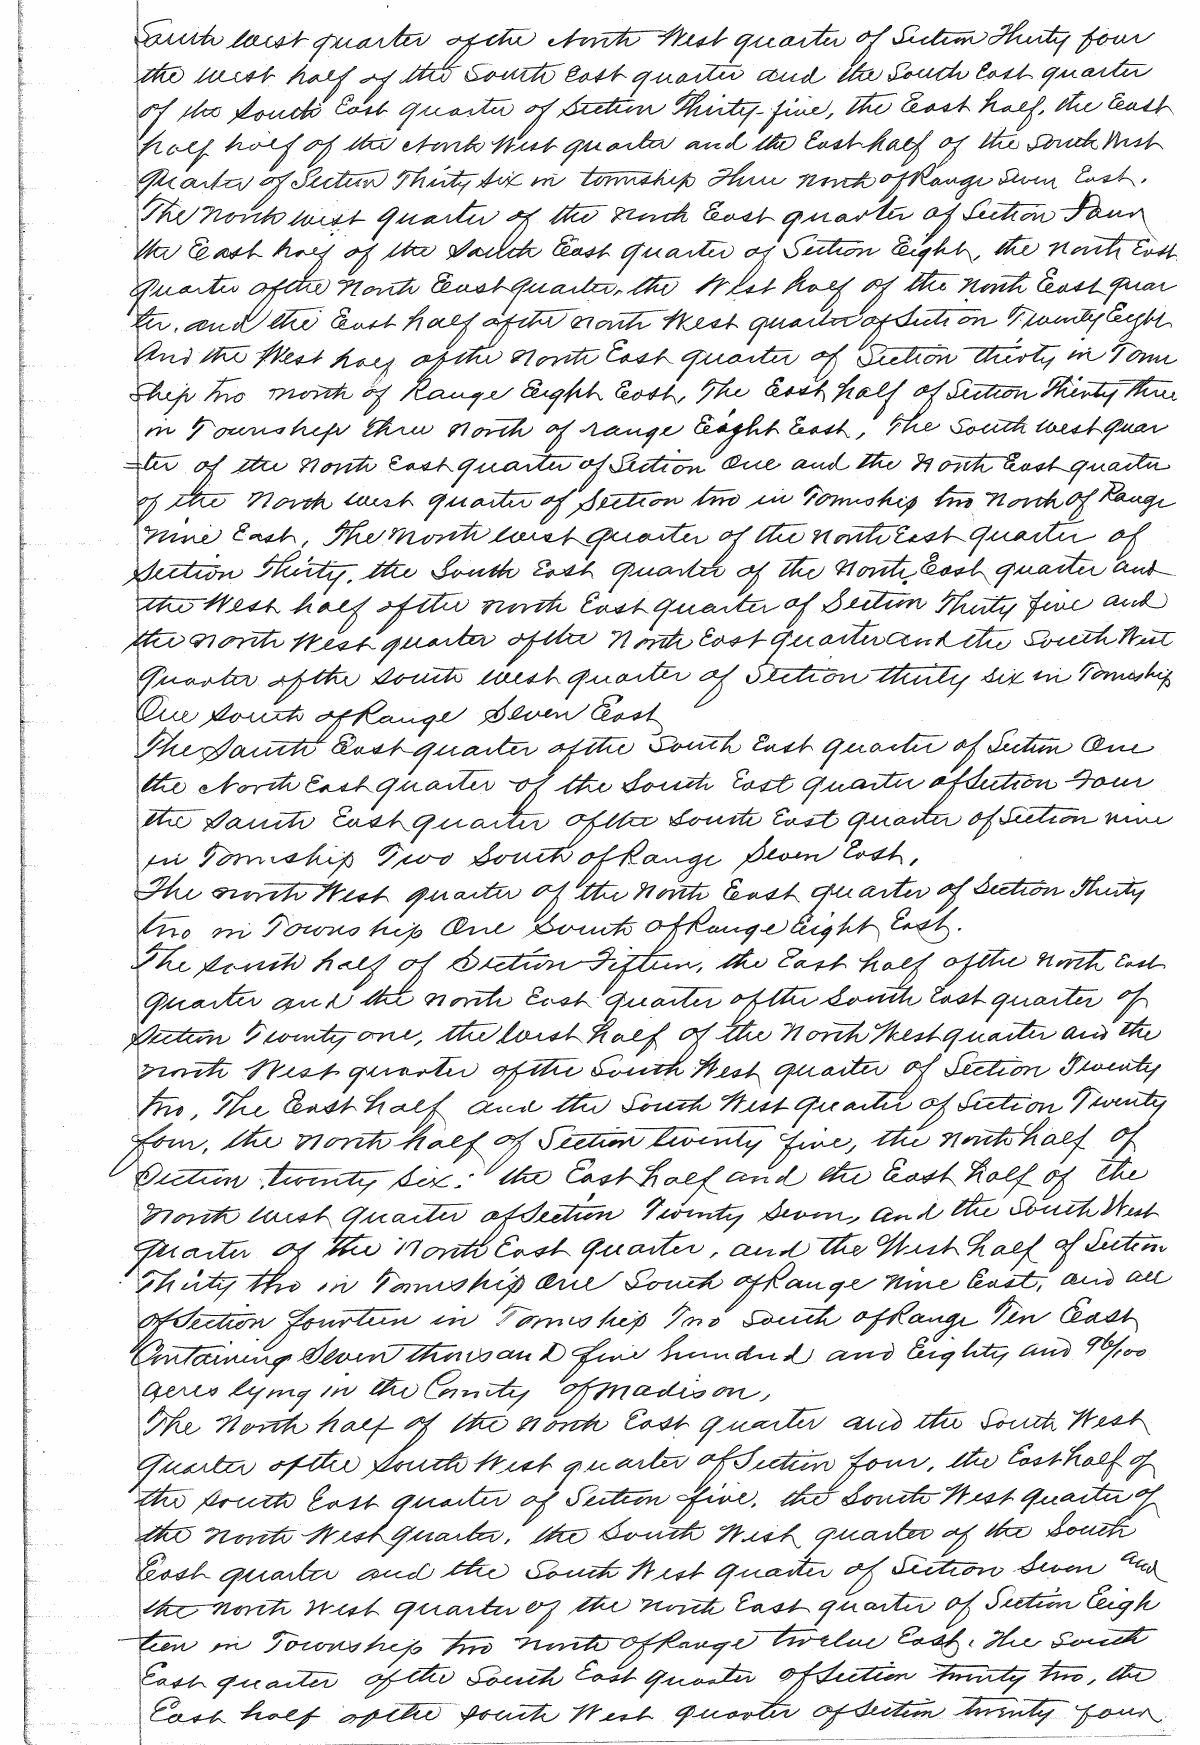 South west quarter of the North West quarter of Section Thirty four
the west half of the South East quarter and the South East quarter
of the South East quarter of Section Thirty-five, the East half, the East
half half of the North West quarter and the East half of the South West
Quarter of Section Thirty Six in township Three North of Range Seven East.
The North west quarter of the North East quarter of Section Four
the East half of the South East quarter of Section Eight, the North East
quarter of the North East quarter, the West half of the North East quar
ter, and the East half of the North West quarter of Section Twenty Eight
And the West half of the North East quarter of Section thirty in Town
ship two North of Range Eight East, The East half of Section Thirty three
in Township three North of range Eight East, The South west quar
=ter of the North East quarter of Section One and the North East quarter
of the North west quarter of Section two in Township two North of Range
Nine East, The North west quarter of the North East quarter of
Section Thirty, the South East quarter of the North East quarter and
the West half of the North East quarter of Section Thirty five and
the North West quarter of the North East quarter and the South West
Quarter of the South west quarter of Section thirty six in Township
One South of Range Seven East
The South East quarter of the South East quarter of Section One
the North East quarter of the South East quarter of Section Four
the South East quarter of the South East quarter of Section nine
in Township Two South of Range Seven East,
The North West quarter of the North East quarter of Section Thirty
two in Township One South of Range Eight East.
The South half of Section Fifteen, the East half of the North East
quarter and the North East quarter of the South East quarter of
Section Twenty one, the West half of the North West quarter and the
North West quarter of the South West quarter of Section Twenty
two, The East half and the South West quarter of Section Twenty
four, the North half of Section twenty five, the North half of
Section twenty six: the East half and the East half of the
North west quarter of Section Twenty Seven, and the South West
quarter of the North East quarter, and the West half of Section
Thirty two in Township One South of Range Nine East, and all
of Section fourteen in Township Two South of Range Ten East
Containing Seven thousand five hundred and Eighty and 96/100
acres lying in the County of Madison,
The North half of the North East quarter and the South West
Quarter of the South West quarter of Section four, the East half of
the South East quarter of Section five, the South West quarter of
the North West quarter, the South West quarter of the South
East quarter and the South West quarter of Section Seven and
the North West quarter of the North East quarter of Section Eigh
teen in Township two North of Range twelve East. The South
East quarter of the South East quarter of Section twenty two, the
East half of the South West quarter of Section twenty four